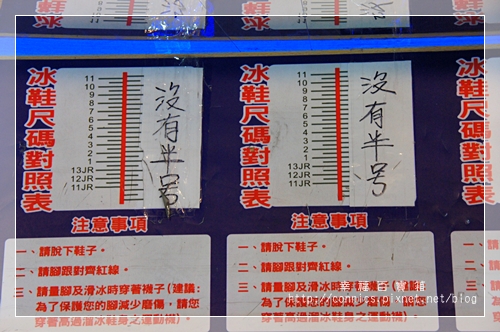 冰鞋尺碼對照表
11
10
9
8
7
6
5
4
3
2
1
13JR
12JR
11JR
沒有半号
注意事項
一、請脫下鞋子。
二、請腳跟對齊紅線。
三、請量腳及滑冰時穿著襪子(建議:
為了保護您的腳減少磨傷,請您
穿著高過溜冰鞋身之運動襪)。
冰鞋尺碼對照表
11
10
9
8
7
6
5
4
3
2
1
13JR
12JR
11JR
沒有半号
注意事項
一、請脫下鞋子。
二、請腳跟對齊紅線。
三、請量腳及滑冰時穿著襪子(建議:
為了保護您的腳減少磨傷,請您
穿著高過溜冰鞋身之運動襪)。
冰鞋尺碼對照表
一、
二、
三、
幸福百寶箱
http://connics.pixnet.net/blog